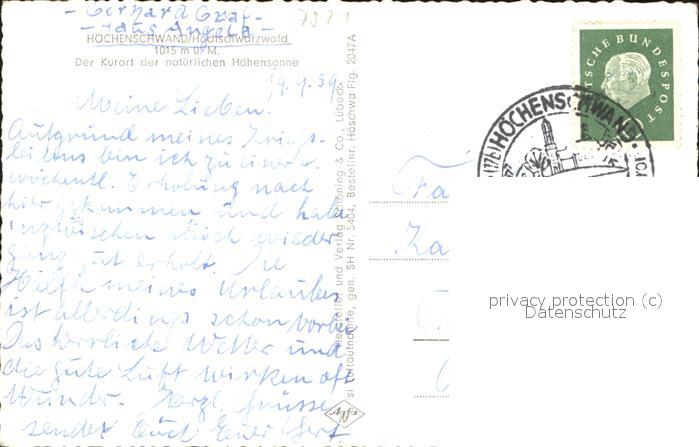 - Gerhard Graf -
- Haus Angela -
7821
HÖCHENSCHWAND/Hochschwarzwald
1015 m ü. M.
Der Kurort der natürlichen Höhensonne
9.9.59
Meine Lieben!
Aufgrund meines Kriegs-
leidens bin ich zu einer
wöchentl. Erholung nach
hier gekommen und habe
inzwischen mich wieder
ganz gut erholt. Die
Hälfte meines Urlaubes
ist allerdings schon vorbei
Das herrliche Wetter und
die gute Luft wirken oft
Wunder. Herzl. Grüsse
sendet Euch Euer Gert
Hersteller und Verlag Schöning & Co., Lübeck
si Luftaufnahme, gen. SH Nr. 5404, Bestellnr. Höschwa Flg. 2047A
Agfa
DEUTSCHE BUNDESPOST
(17b) HÖCHENSCHWAND
Fa
Ka
privacy protection (c)
Datenschutz